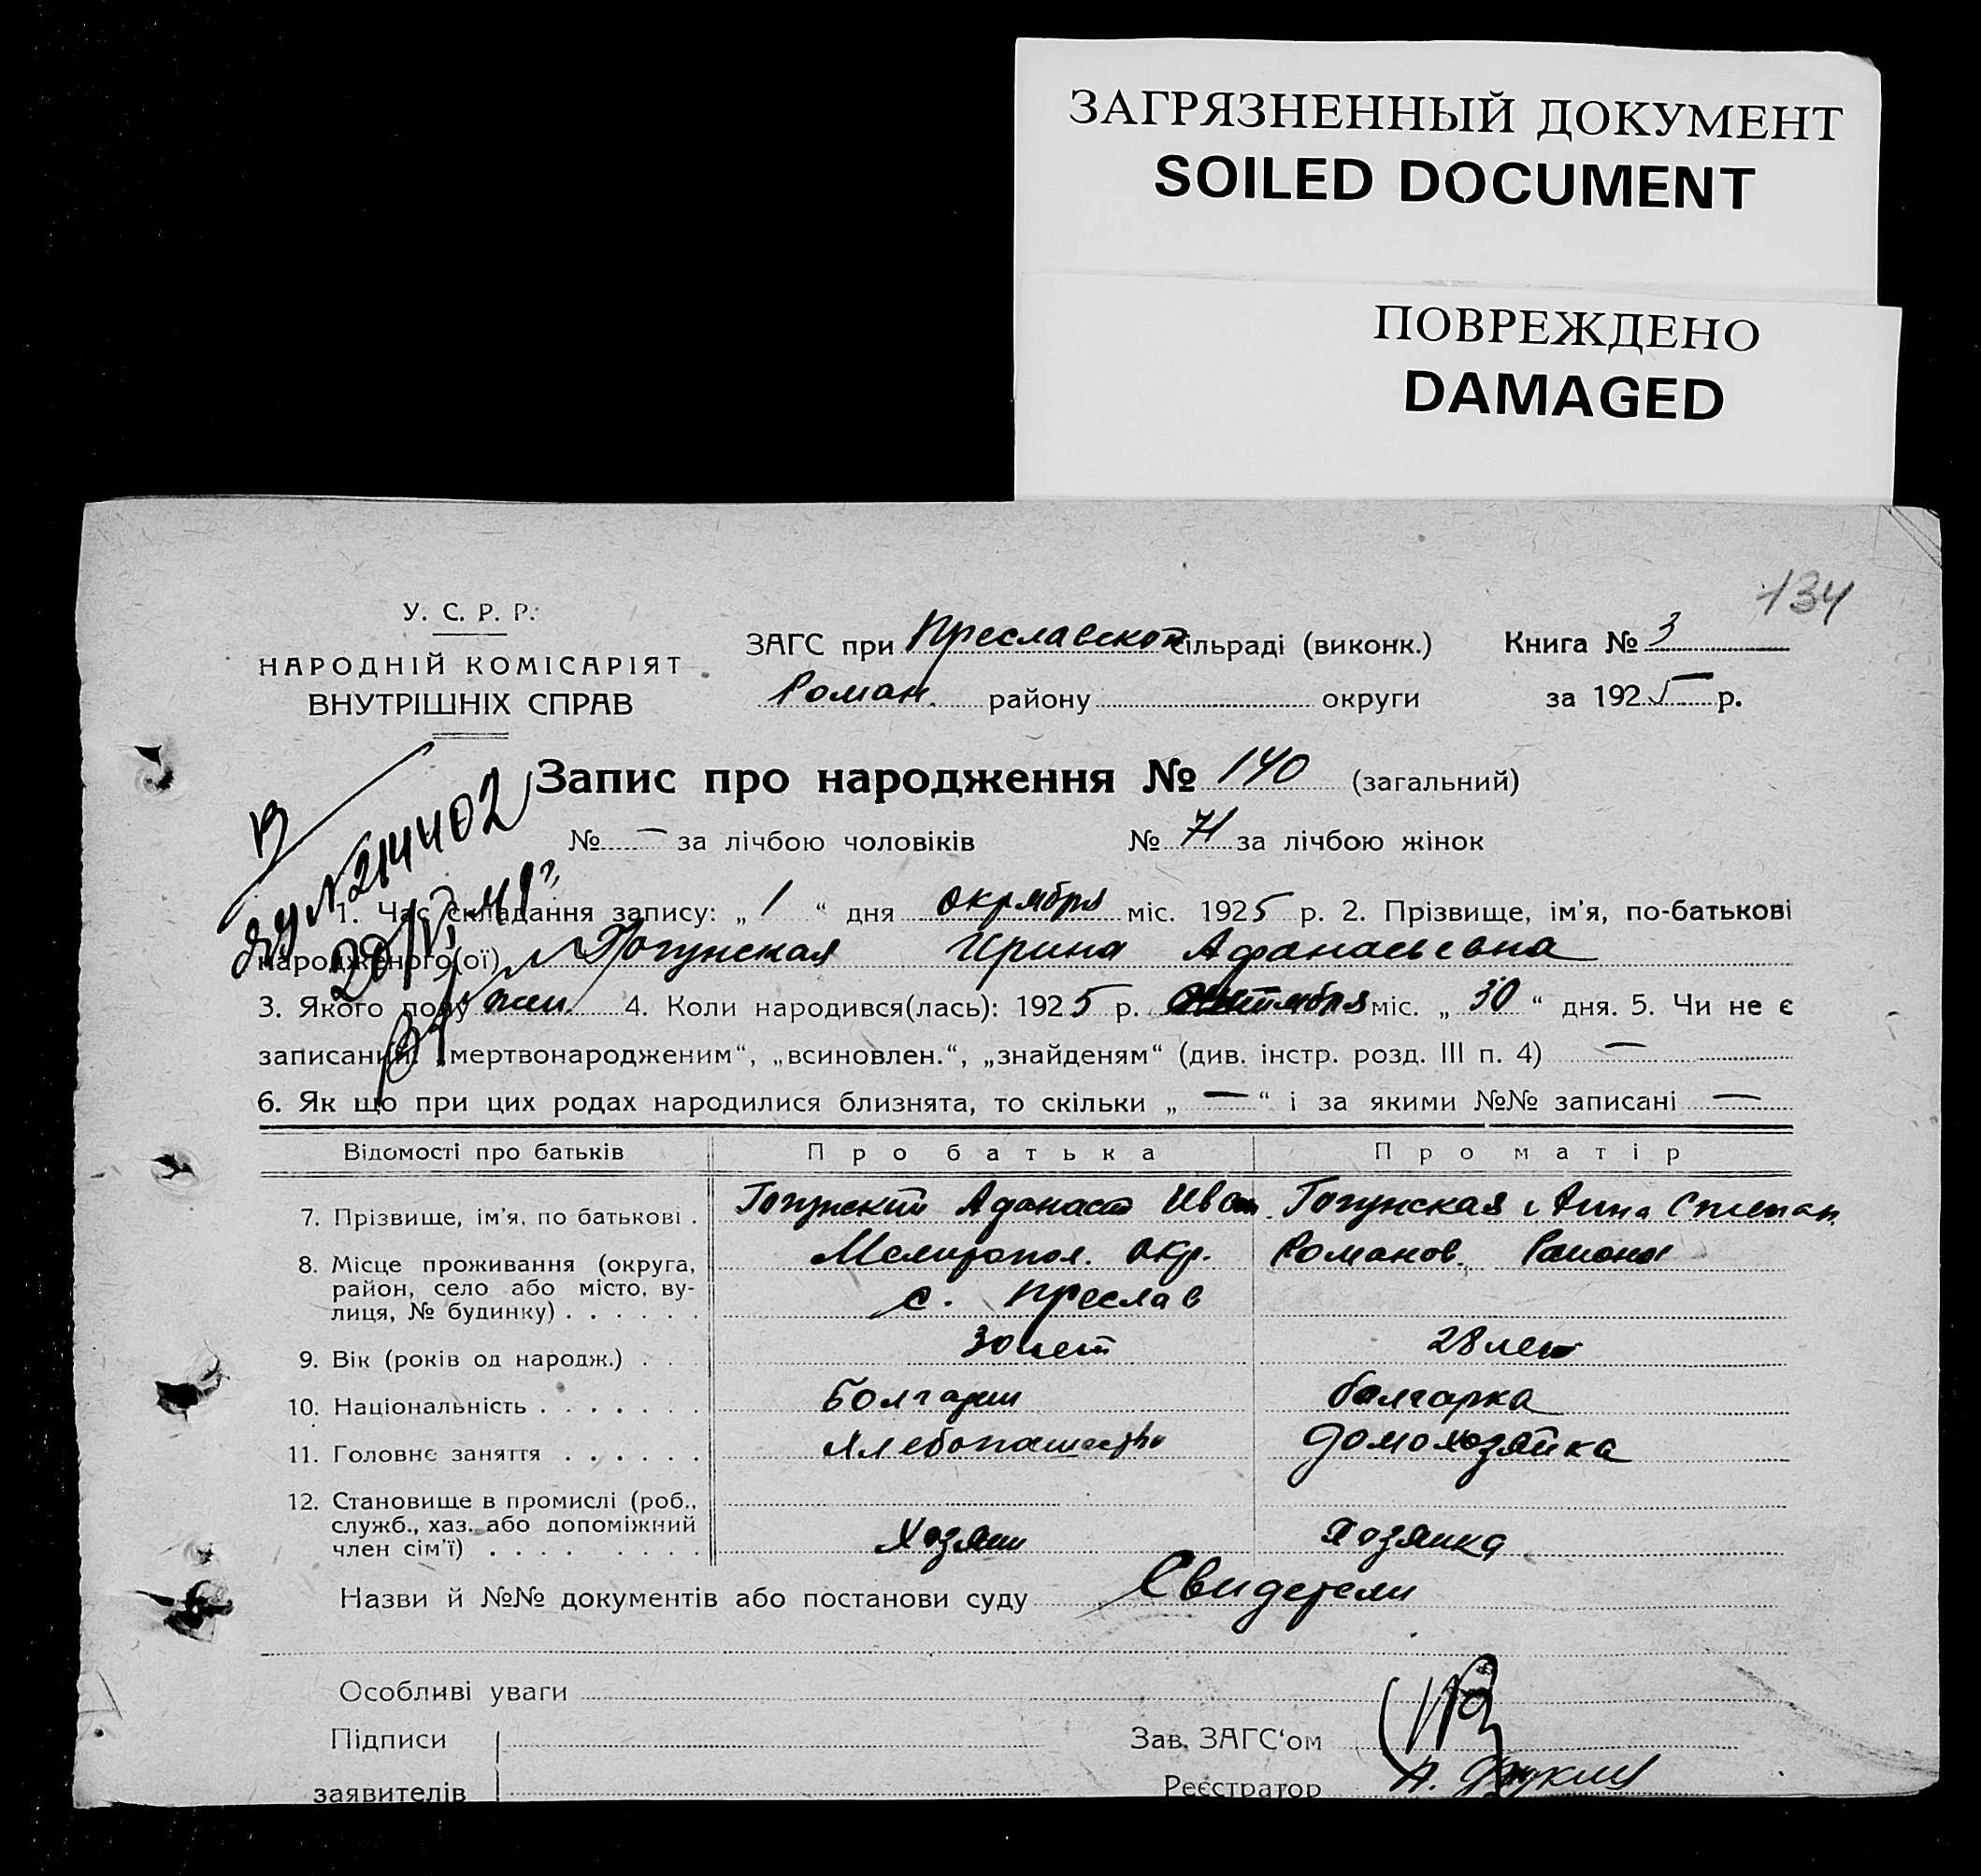 ЗАГРЯЗНЕННЫЙ ДОКУМЕНТ
SOILED DOCUMENT
ПОВРЕЖДЕНО
DAMAGED
134
У. С. Р. Р.
НАРОДНІЙ КОМІСАРІЯТ
ВНУТРІШНІХ СПРАВ
ЗАГС при Преславской сільраді (виконк.) Книга № 3
Роман. району округи за 1925 р.
Запис про народження № 140 (загальний)
№ — за лічбою чоловіків № 71 за лічбою жінок
В
№ 214402
1. Час складання запису: „ 1 “ дня октября міс. 1925 р. 2. Прізвище, ім’я, по-батькові
народженого(ої) Погунская Ирина Афанасьевна
3. Якого полу жен. 4. Коли народився(лась): 1925 р. сентября міс. „ 30 “ дня. 5. Чи не є
записаний: „мертвонародженим“, „всиновлен.“, „знайденям“ (див. інстр. розд. III п. 4) —
6. Як що при цих родах народилися близнята, то скільки „ — “ і за якими №№ записані —
Відомості про батьків Про батька Про матір
7. Прізвище, ім’я, по батькові . Афанасий Иван. Анна Степан.
8. Місце проживання (округа, Мелитопол. окр. Романов. Района
район, село або місто, ву-
лиця, № будинку) . . . . . . с. Преслав
9. Вік (років од народж.) . . . 30 лет 28 лет
10. Національність . . . . . . . Болгарин болгарка
11. Головнє заняття . . . . . . Хлебопашество домохозяйка
12. Становище в промислі (роб.,
служб., хаз. або допоміжний
член сім’ї) . . . . . . . . Хозяин Хозяйка
Назви й №№ документів або постанови суду Свидетели
Особливі уваги
Підписи Зав. ЗАГС‘ом
заявителів Реєстратор